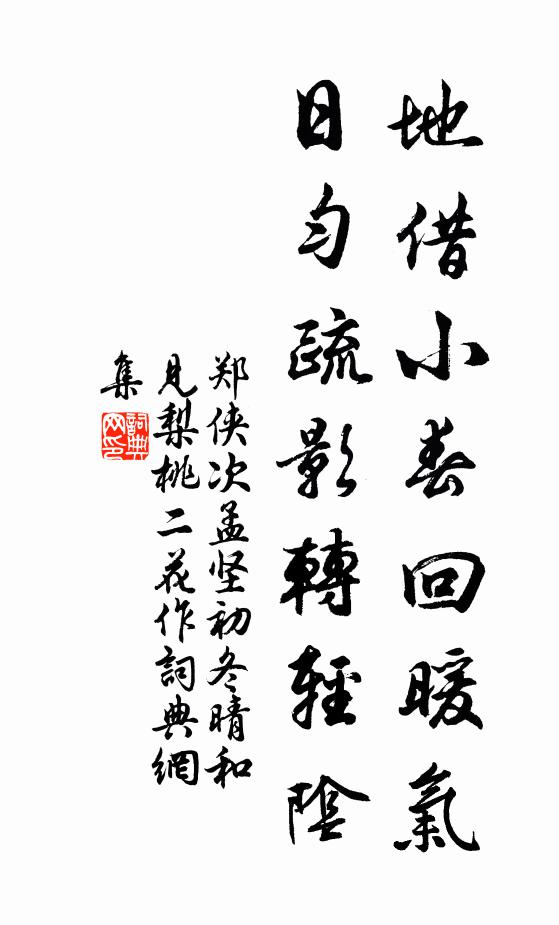 地借小春回暖氣
日勻疏影轉輕陰
郑侠次孟坚初冬晴和
见梨桃二花作詞典網
集
詞典网印